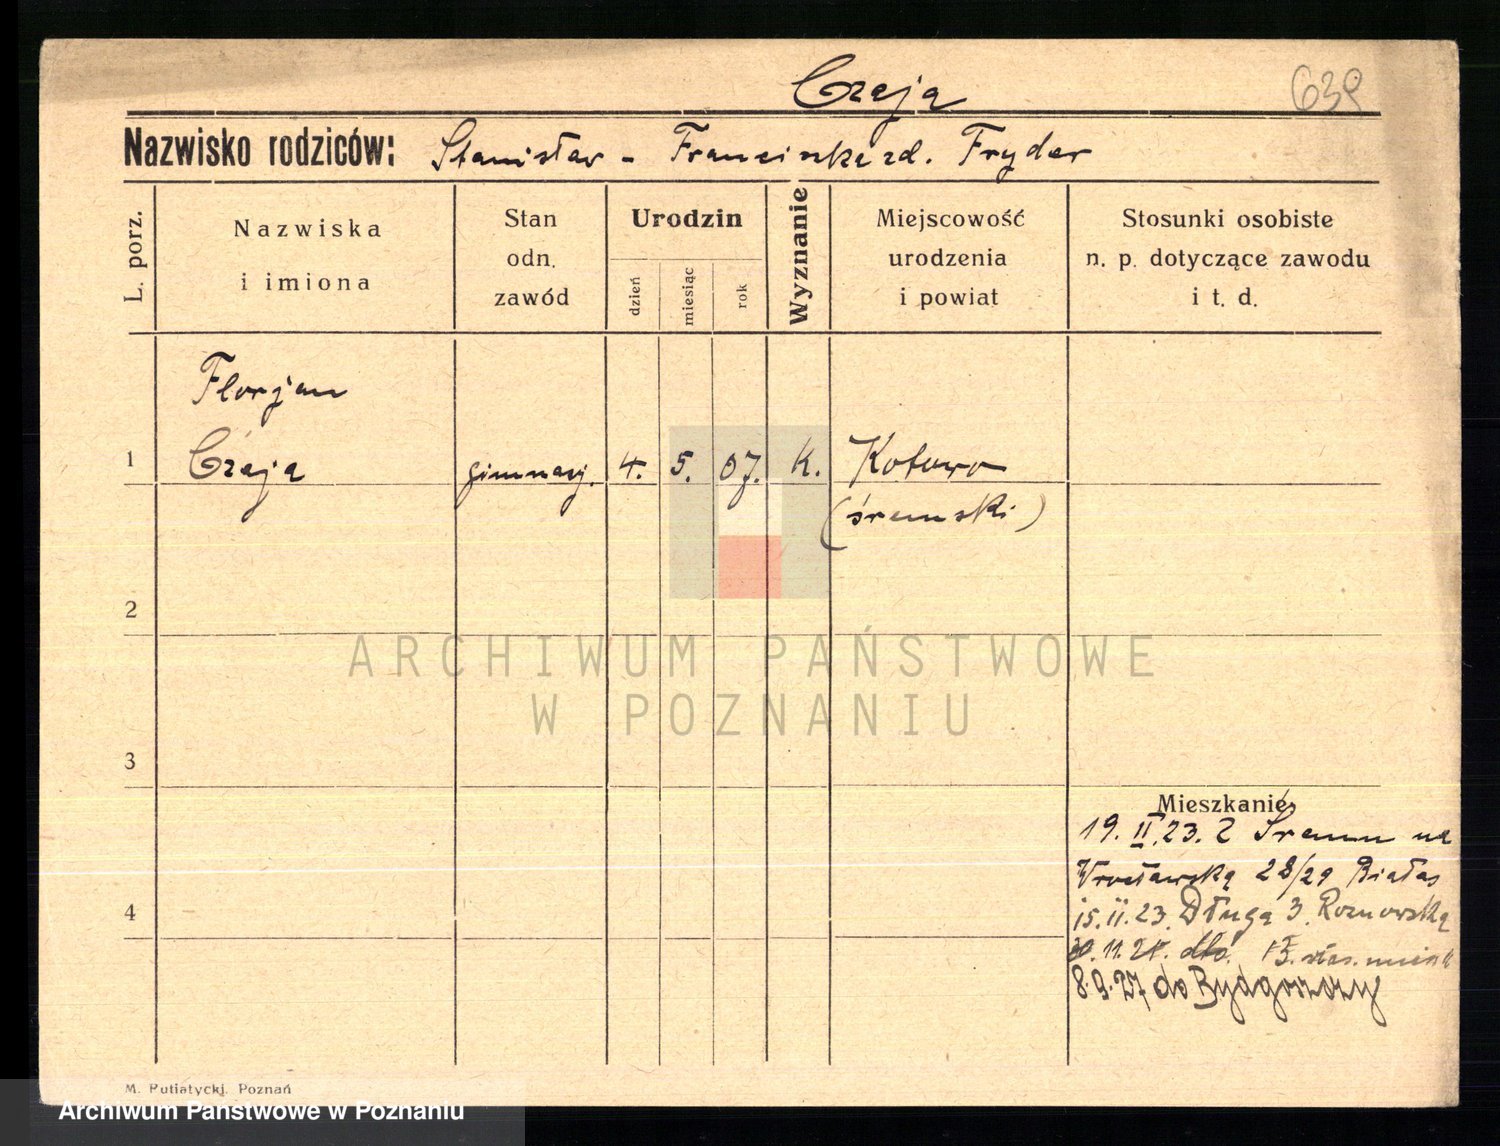 Czaja
639
Nazwisko rodziców: Stanisław - Franciszka zd. Fryder
L. porz.
Nazwiska
i imiona
Stan
odn.
zawód
Urodzin
dzień
miesiąc
rok
Wyznanie
Miejscowość
urodzenia
i powiat
Stosunki osobiste
n. p. dotyczące zawodu
i t. d.
Florjan
1 Czaja gimnazj. 4. 5. 07. K. Kotowo
(śremski)
2
3
4
ARCHIWUM PAŃSTWOWE
W POZNANIU
Mieszkanie
19. II. 23. Z Śremu na
Wrocławską 28/29 Białas
15. II. 23. Długa 3. Roznowska
11. dto. 15.
8.9.27 do Bydgoszczy
M. Putiatycki. Poznań
Archiwum Państwowe w Poznaniu